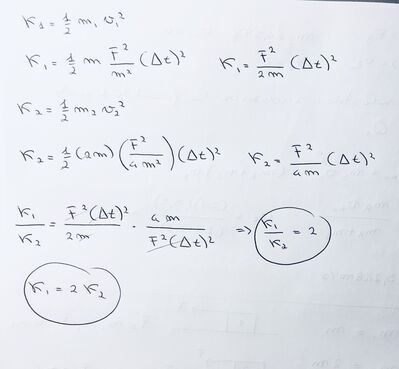 K₁ = 1/2 m₁ v₁²
K₁ = 1/2 m F²/m² (Δt)² K₁ = F²/2m (Δt)²
K₂ = 1/2 m₂ v₂²
K₂ = 1/2 (2m) (F²/4m²) (Δt)² K₂ = F²/4m (Δt)²
K₁/K₂ = F²(Δt)²/2m · 4m/F²(Δt)² => K₁/K₂ = 2
K₁ = 2 K₂